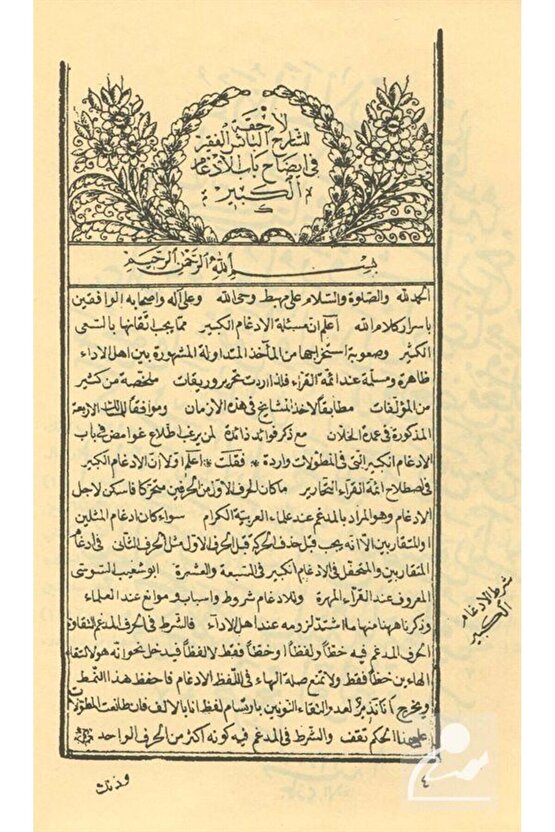 لاحقة
للشارح الناشر الفقير
في ايضاح باب الادغام
الكبير
بسم الله الرحمن الرحيم
الحمد لله والصلوة والسلام على مهبط وحى الله وعلى آله واصحابه الواقفين
باسرار كلام الله اعلم ان مسئلة الادغام الكبير مما يجب اتقانها بالسعى
الكثير وصعوبة استخراجها من المآخذ المتداولة المشهورة بين اهل الاداء
ظاهرة ومسلمة عند ائمة القراء فلذا اردت تحرير وريقات ملخصة من كثير
من المؤلفات مطابقا لاخذ المشايخ فى هذه الازمان وموافقا للمسالك الاربعة
المذكورة فى عمدة الخلان مع ذكر فوائد زائدة لمن يرغب اطلاع غوامض فى باب
الادغام الكبير التى فى المطولات واردة فقلت اعلم اولا ان الادغام الكبير
فى اصطلاح ائمة القراء النحارير ما كان الحرف الاول من الحرفين متحركا فاسكن لاجل
الادغام وهو المراد بالمدغم عند علماء العربية الكرام سواء كان ادغام المثلين
او المتقاربين الا انه يجب قبل حذف الحركة قبل الحرف الاول مثل الحرف الثانى فى ادغام
المتقاربين والمتحفل فى الادغام الكبير فى السبعة والعشرة ابو شعيب السوسى
المعروف عند القراء المهرة وللادغام شروط واسباب وموانع عند العلماء
وذكرنا ههنا منها ما اشتد لزومه عند اهل الاداء فالشرط فى الحرف المدغم التقاؤه
الحرف المدغم فيه خطا ولفظا او خطا فقط لا لفظا فيدخل نحو انه هو لالتقاء
الهاءين خطا فقط ولا تمنع صلة الهاء فى اللفظ الادغام فاحفظ هذا النمط
ويخرج انا نذير لعدم التقاء النونين بارتسام لفظ انا بالالف فان طالعت المطولات
على هذا الحكم تقف والشرط فى المدغم فيه كونه اكثر من الحرف الواحد
شرط الادغام
الكبير
٤
وذلك